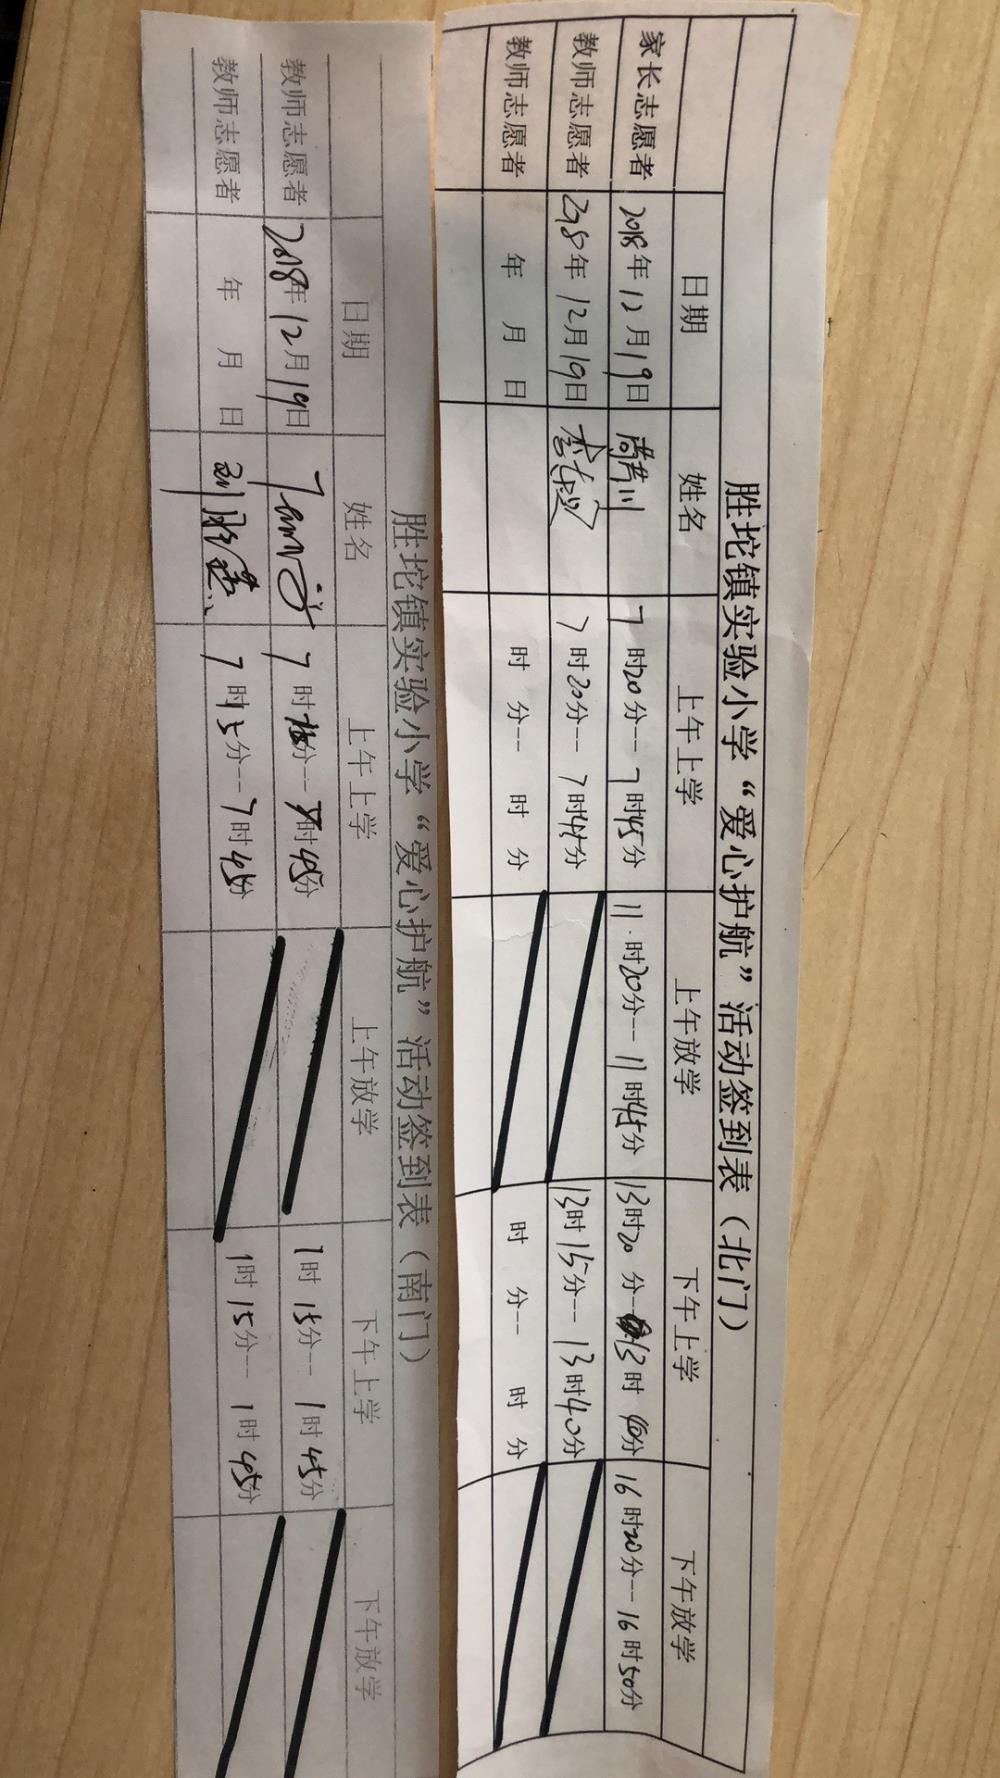 胜坨镇实验小学“爱心护航”活动签到表（北门）
日期 姓名 上午上学 上午放学 下午上学 下午放学
家长志愿者 2018年12月19日 7时20分--7时45分 11时20分--11时45分 13时20分--13时40分 16时20分--16时50分
教师志愿者 2018年12月19日 7时20分--7时45分 13时15分--13时40分
教师志愿者 年 月 日 时 分-- 时 分 时 分-- 时 分
胜坨镇实验小学“爱心护航”活动签到表（南门）
日期 姓名 上午上学 上午放学 下午上学 下午放学
教师志愿者 2018年12月19日 7时 分--7时45分 1时15分--1时45分
教师志愿者 年 月 日 7时 分--7时45分 1时15分--1时45分